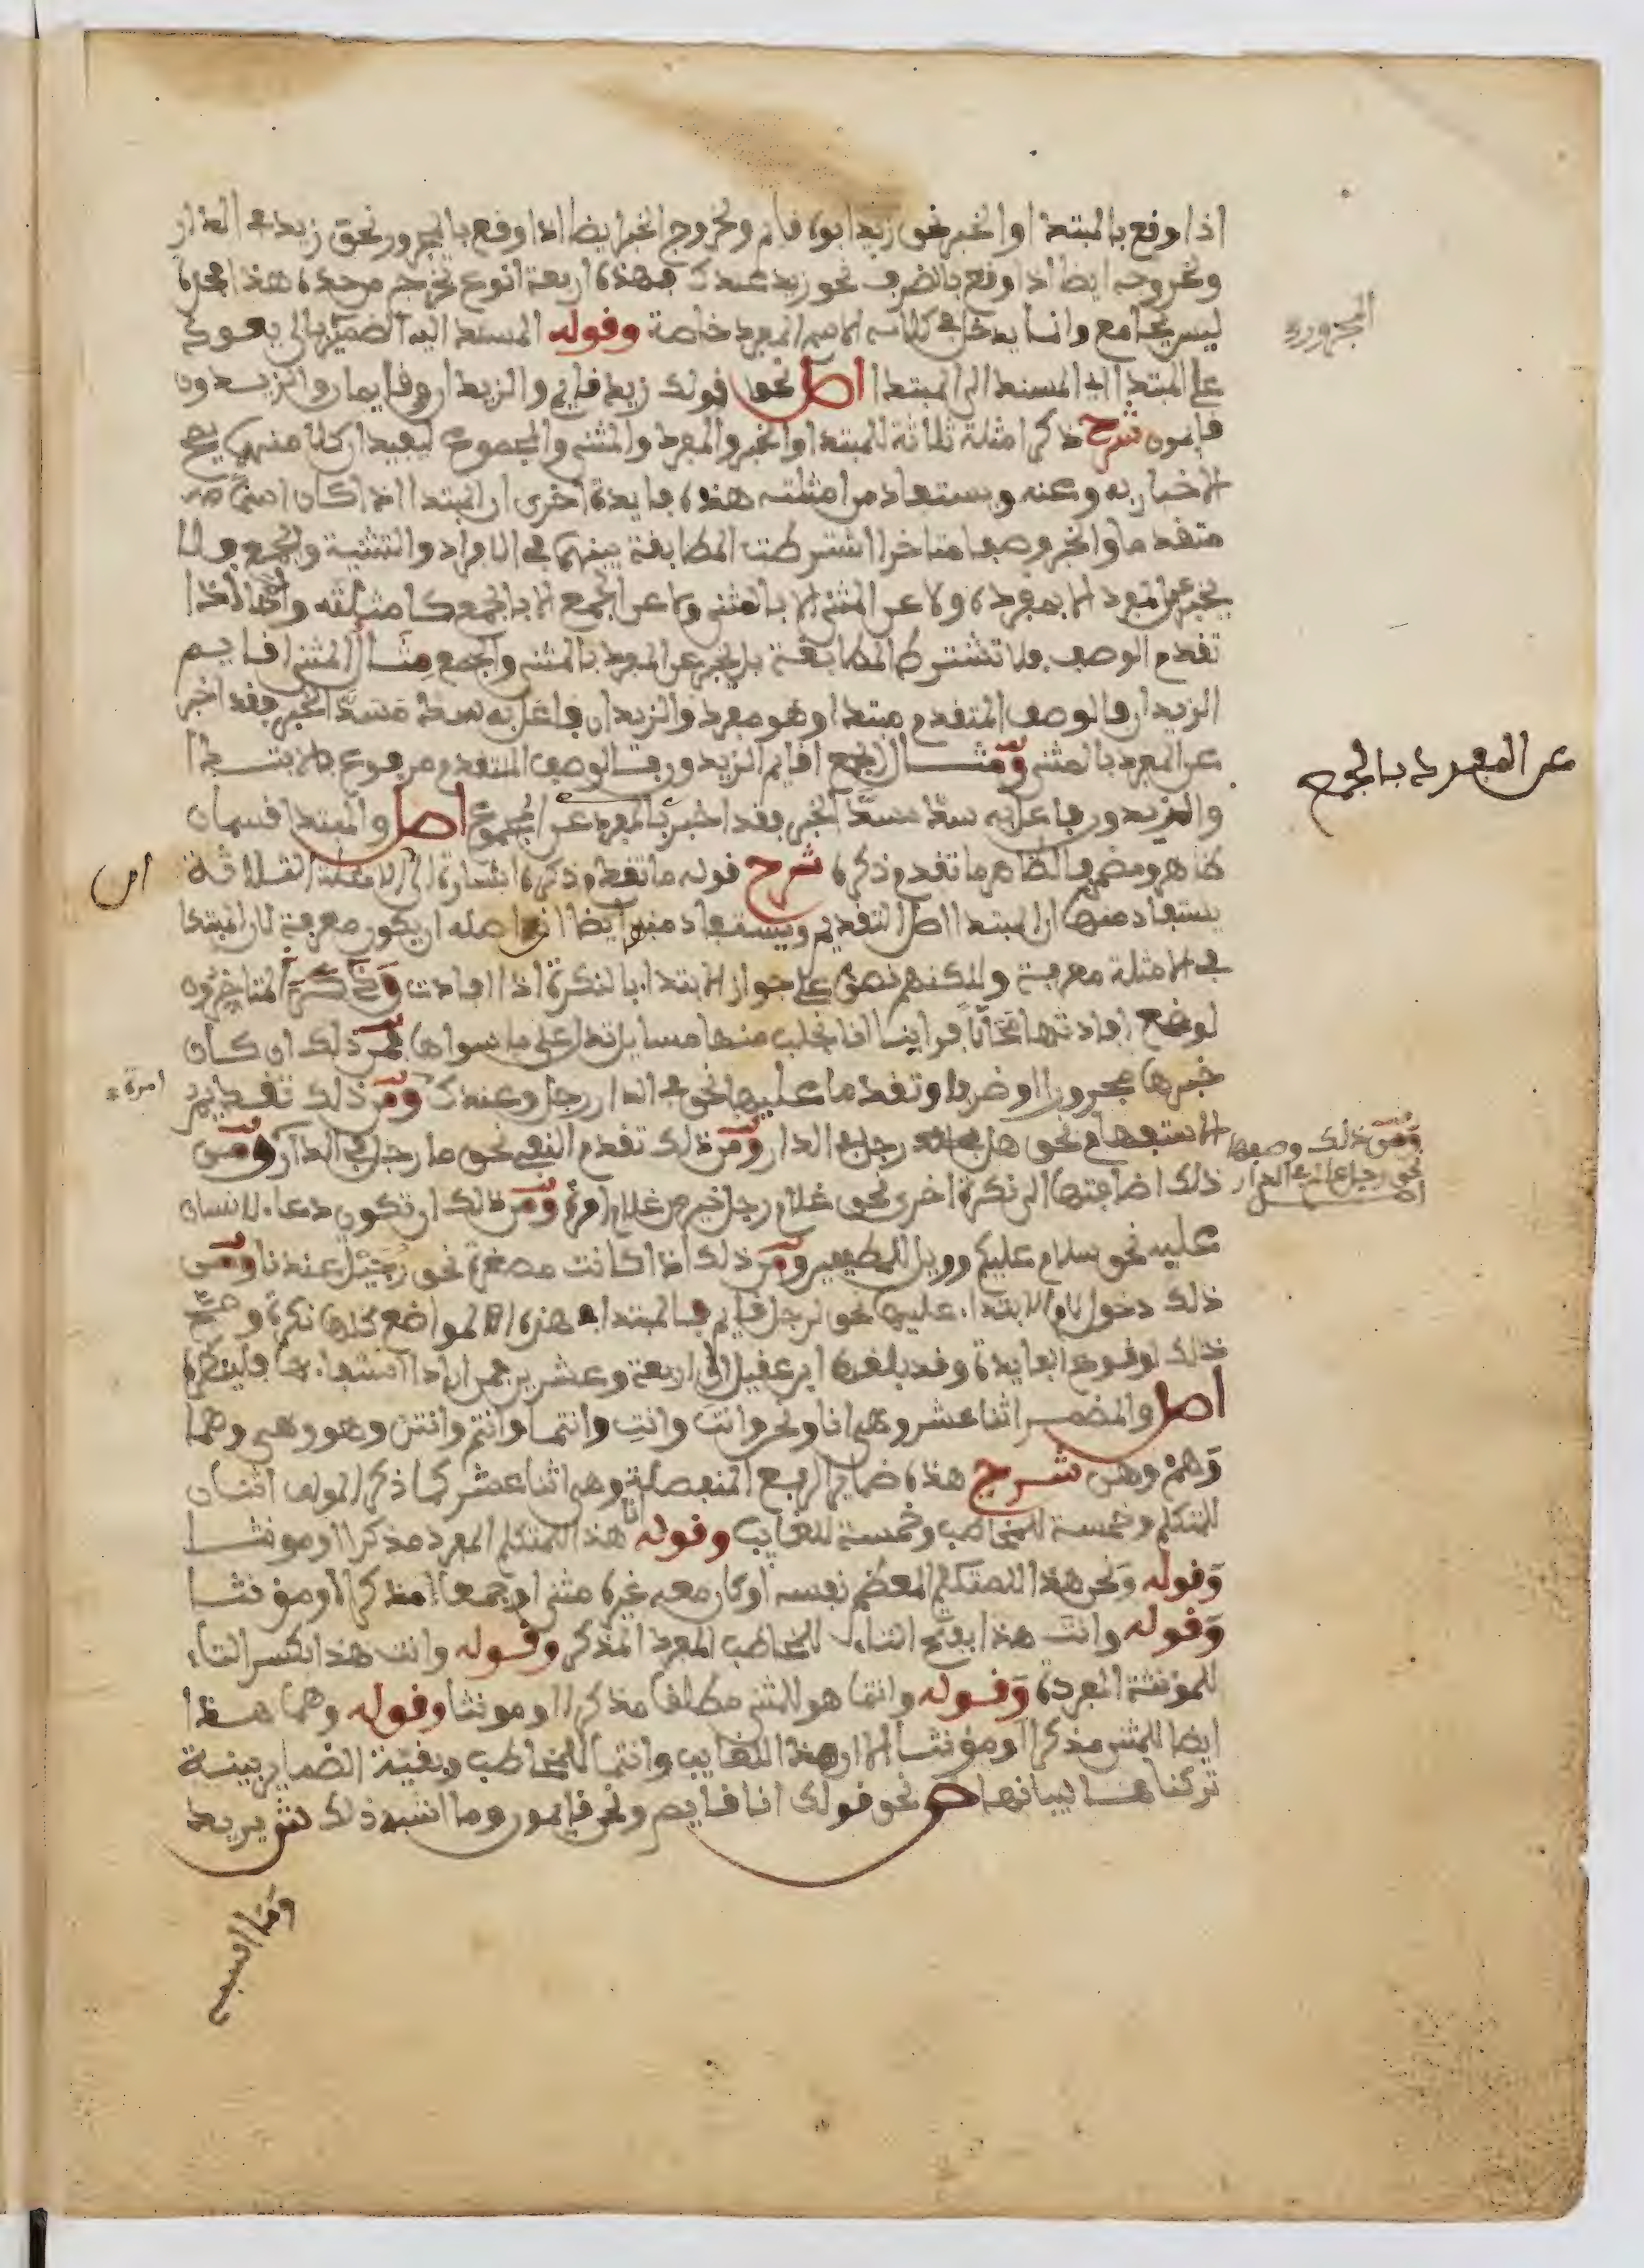 اذا رفع بالمبتدا والخبر نحو زيد ابوه قايم وخروج الخبر ايضا اذا وقع بالمجرور نحو زيد في الدار
وخروجه ايضا اذا وقع بالظرف نحو زيد عندك فهذه اربعة انوع تخرجم من حده هذا محده
ليس بجامع وانما يدخل في كلامه الاسم المفرد خاصة وقوله المسند اليه الضمير بالى يعود
على المبتدا اي المسند الى المبتدا اصل نحو قولك زيد قايم والزيدان قايمان والزيدون
قايمون شرح ذكر امثلة ثلاثة للمبتدا والخبر والمفرد والمثنى والمجموع ليفيد ان كلا منهم يصح
الاخبار به وعنه ويستفاد من امثلته هذه فايدة اخرى ان المبتدا اذا كان اسما
متقدما والخبر وصفا متاخرا اشترطت المطابقة بينهما في الافراد والتثنية والجمع ولا
يخبر عن المفرد الا بمفرده ولا عن المثنى الا بالمثنى ولا عن الجمع الا بالجمع كامثلته واذا
تقدم الوصف فلا تشترط المطابقة بل يخبر عن المفرد بالمثنى والجمع مثال المثنى اقايم
الزيدان فالوصف المتقدم مبتدا وهو مفرد والزيدان فاعل به سد مسد الخبر فقد اخبر
عن المفرد بالمثنى ومثال الجمع اقايم الزيدون فالوصف المتقدم مرفوع بالابتدا
والزيدون فاعل به سد مسد الخبر فقد اخبر بالمفرد عن المجموع اصل والمبتدا قسمان
ظاهر ومضمر فالظاهر ما تقدم ذكره شرح قوله ما تقدم ذكره اشارة الى الامثلة الثلاثة
يستفاد منها ان المبتدا اصل التقديم ويستفاد منها ايضا ان اصله ان يكون معرفة لان المبتدا
في الامثلة معرفة ولكنهم نصوا على جواز الابتدا بالنكرة اذا افادت وذكر المتاخرون
لوضع افادتها قراينا انا نجلب منها مسايل تدل على ما سواها فمن ذلك ان كان
خبرها مجرورا او ظرفا وتقدما عليها نحو في الدار رجل وعندك ومن ذلك تقديم
الاستفهام نحو هل رجل في الدار ومن ذلك تقدم النفي نحو ما رجل في الدار ومن
ذلك اضافتها الى نكرة اخرى نحو غلام رجل خير من غلام امرة ومن ذلك ان تكون دعاء للانسان
عليه نحو سلام عليكم وويل للمطففين ومن ذلك اذا كانت مصغرة نحو رجيل عندنا ومن
ذلك دخول لام الابتداء عليها نحو لرجل قايم فالمبتدا في هذه المواضع كلها نكرة وصح
ذلك لوقوع الفايدة وقد بلغها ابن عقيل الى اربعة وعشرين فمن اراد استيفاءها فلينظره
اصل والمضمر اثنا عشر وهي انا ونحن وانت وانت وانتما وانتم وانتن وهو وهي وهما
وهم وهن شرح هذه ضماير الرفع المنفصلة وهي اثنا عشر كما ذكر المولف اثنان
للمتكلم وخمسة للمخاطب وخمسة للغايب وقوله انا هذا للمتكلم المفرد مذكرا او مونثا
وقوله ونحن هذا للمتكلم المعظم نفسه او كان معه غيره مثنى او جمعا مذكرا او مؤنثا
وقوله وانت هذا بفتح التاء للمخاطب المفرد المذكر وقوله وانت هذا بكسر التاء
للمؤنثة المفردة وقوله وانتما هو للمثنى مطلقا مذكرا او مونثا وقوله وهما هذا
ايضا للمثنى مذكرا او مؤنثا الا ان هذا للغايب وانتما للمخاطب وبقية الضماير بينة
تركناها لبيانها ص نحو قولك انا قايم ونحن قايمون وما اشبه ذلك ش يريد
عن المفرد بالجمع
امرة
ومن ذلك وصفها
نحو رجل عالم في الدار
اصل
وما اشبه